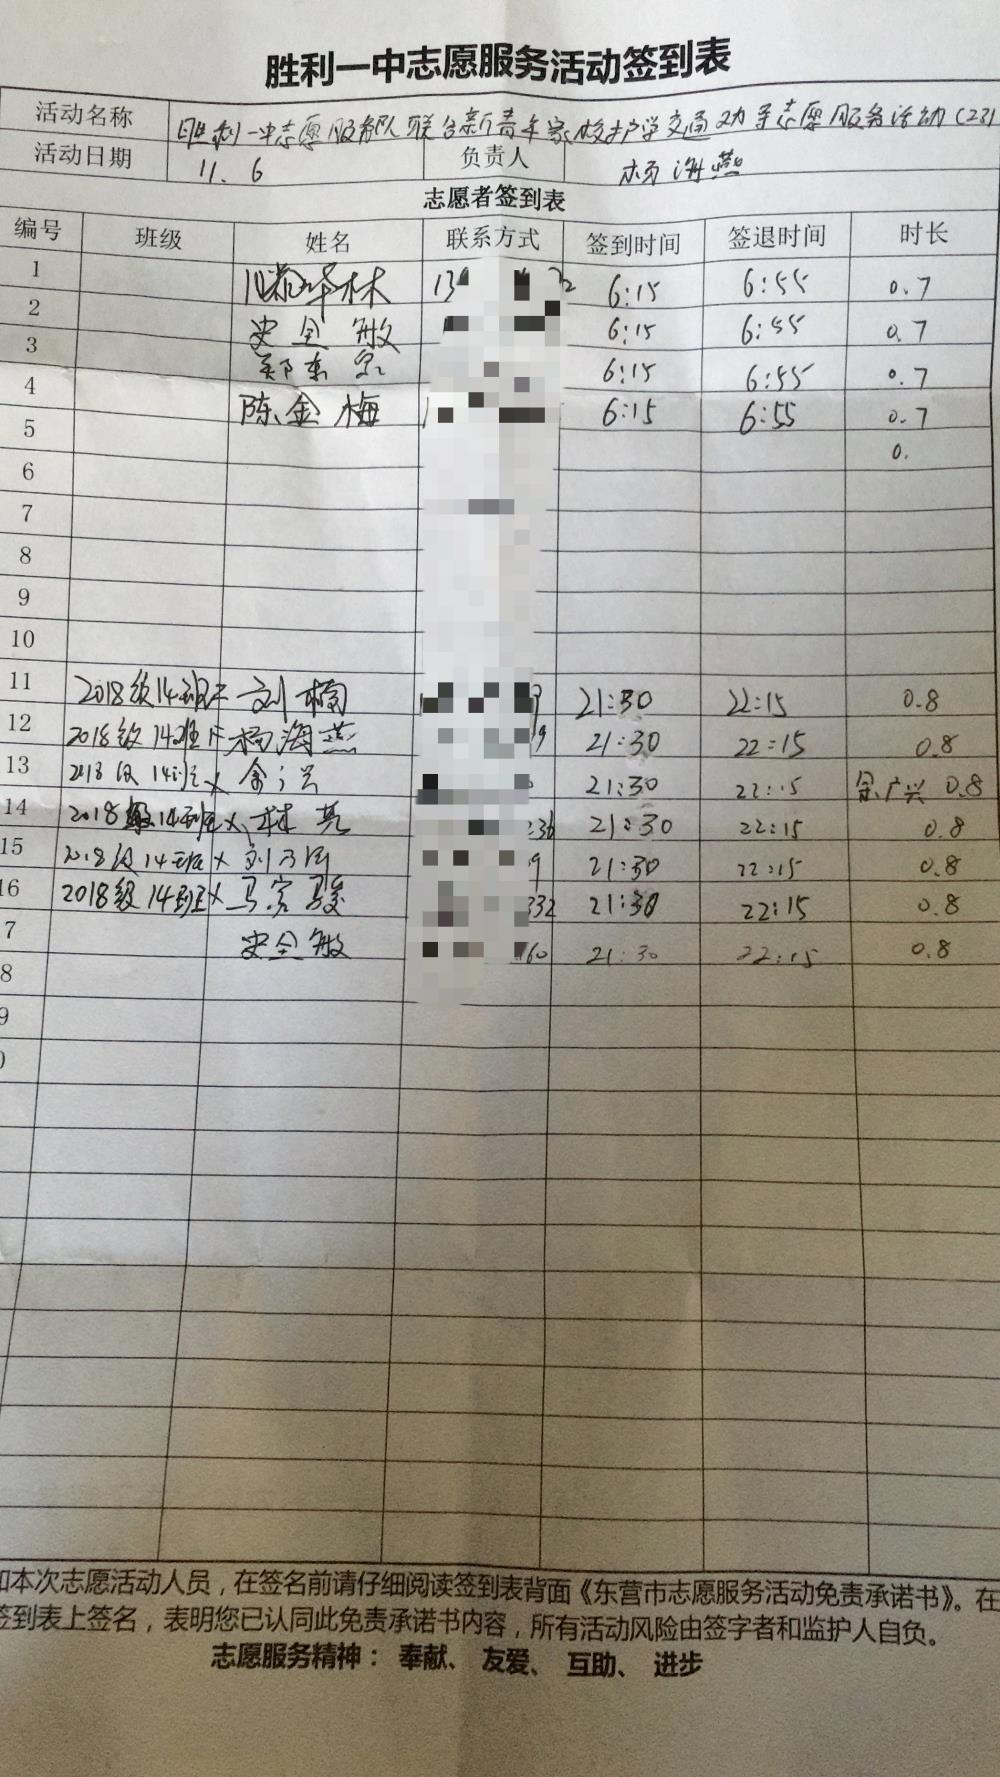 胜利一中志愿服务活动签到表
活动名称 胜利一中志愿服务队联合新青年家校护学交通劝导志愿服务活动(23)
活动日期 11.6 负责人 杨海燕
志愿者签到表
编号 班级 姓名 联系方式 签到时间 签退时间 时长
1 华林 13 6:15 6:55 0.7
2 史全敏 6:15 6:55 0.7
3 郑东 6:15 6:55 0.7
4 陈金梅 6:15 6:55 0.7
5 0.
6
7
8
9
10
11 2018级14班 刘楠 21:30 22:15 0.8
12 2018级14班 杨海燕 9 21:30 22:15 0.8
13 2018级14班 21:30 22:15 余广兴 0.8
14 2018级14班 林亮 236 21:30 22:15 0.8
15 2018级14班 刘 9 21:30 22:15 0.8
16 2018级14班 马宾骏 332 21:30 22:15 0.8
7 史全敏 160 21:30 22:15 0.8
8
9
加本次志愿活动人员，在签名前请仔细阅读签到表背面《东营市志愿服务活动免责承诺书》。在
签到表上签名，表明您已认同此免责承诺书内容，所有活动风险由签字者和监护人自负。
志愿服务精神： 奉献、 友爱、 互助、 进步